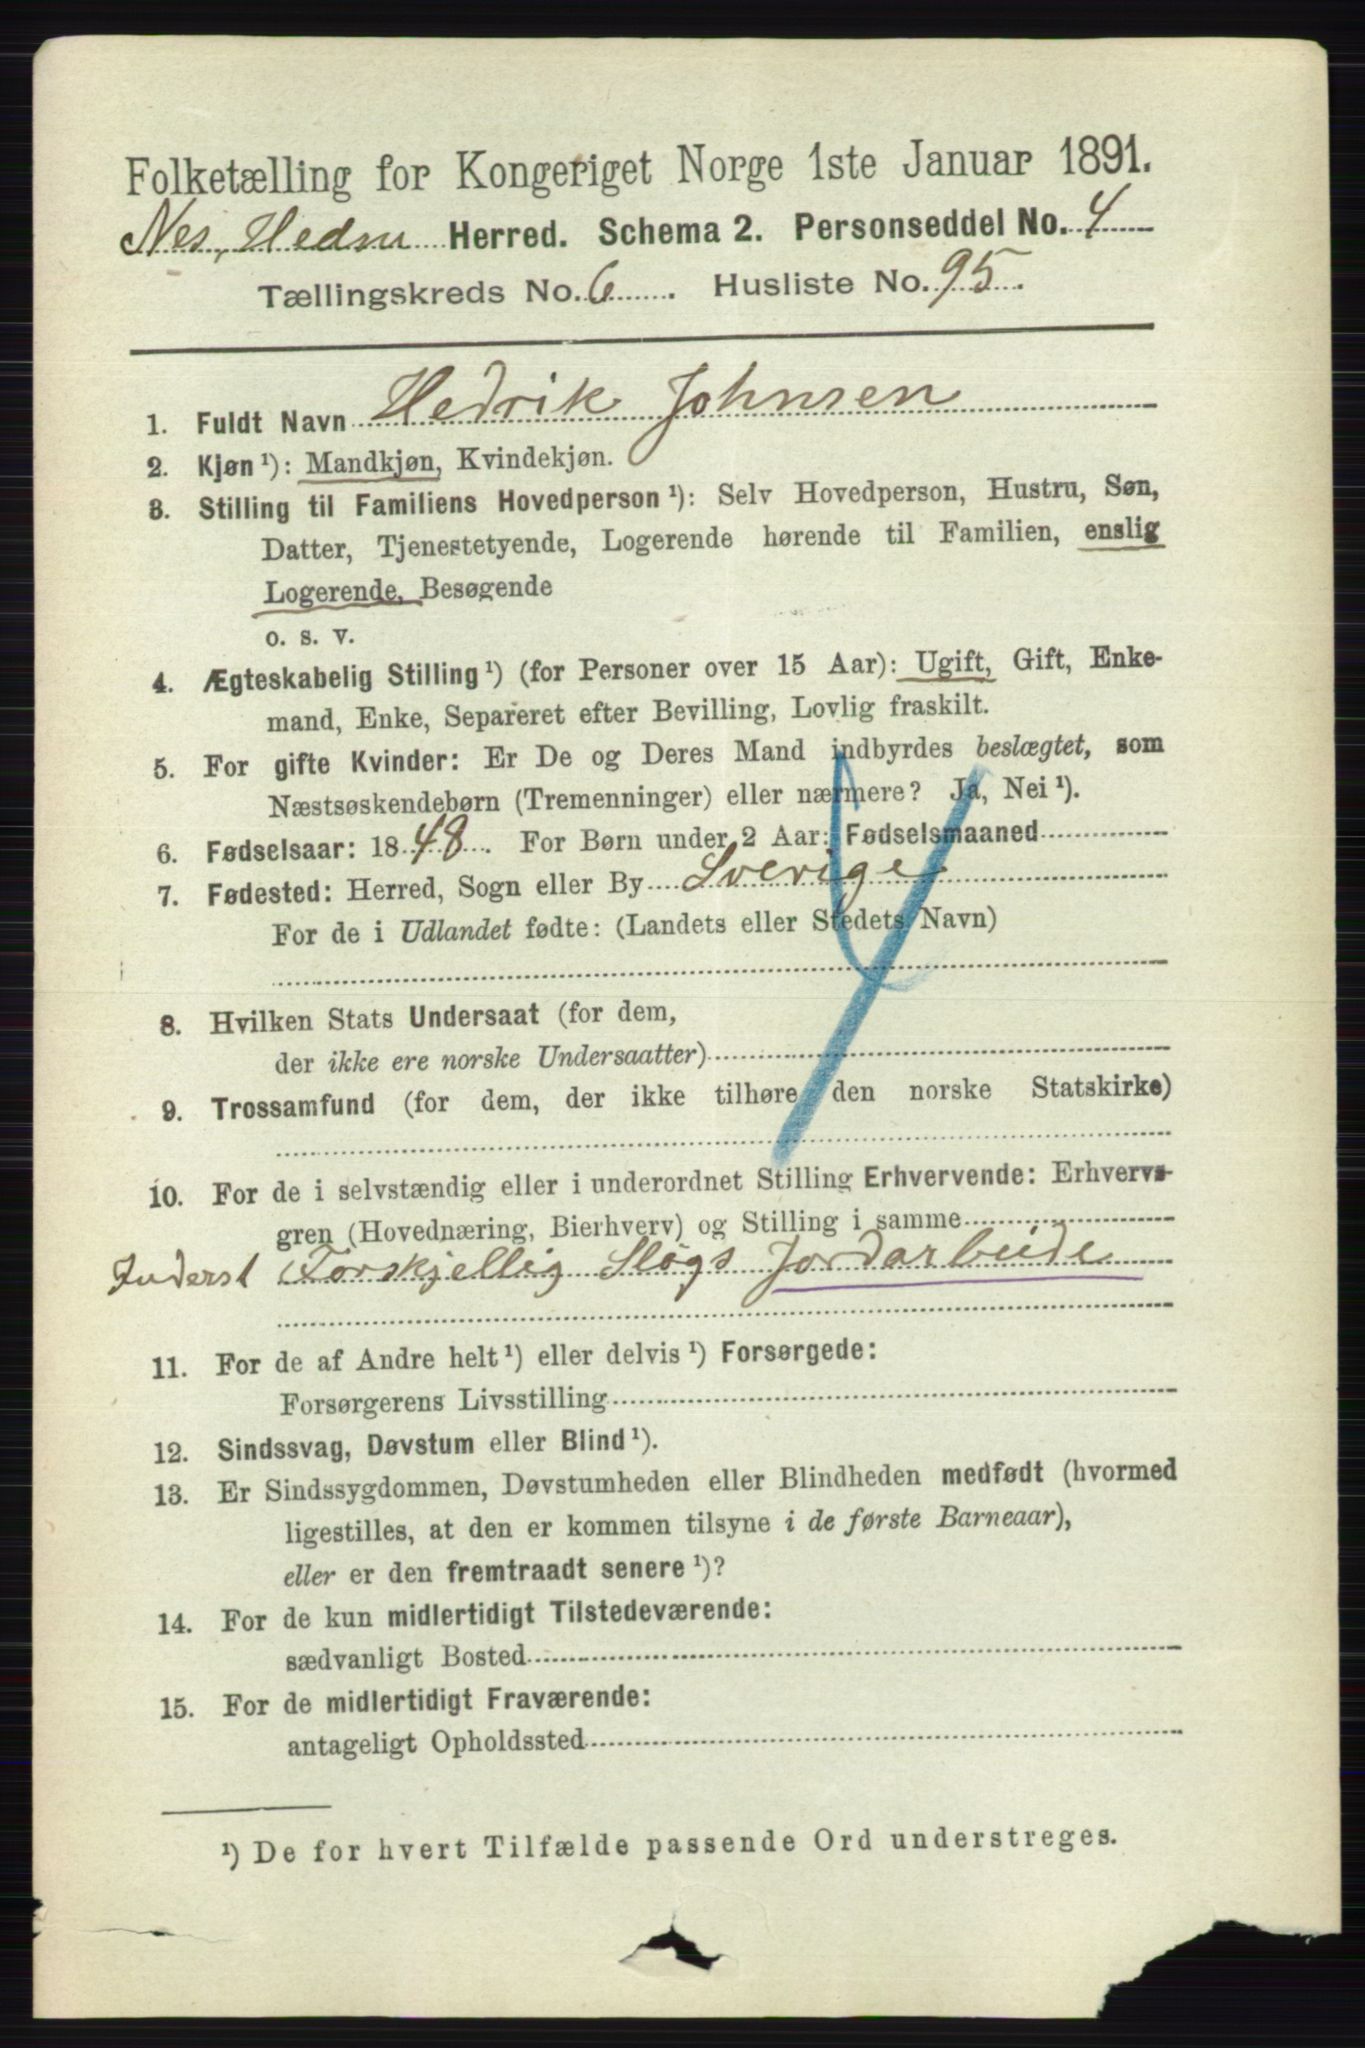 Folketælling for Kongeriget Norge 1ste Januar 1891.
Nes, Hedm Herred. Schema 2. Personseddel No. 4
Tællingskreds No. 6. Husliste No. 95.
1. Fuldt Navn Hedrik Johnsen
2. Kjøn ¹): Mandkjøn, Kvindekjøn.
3. Stilling til Familiens Hovedperson ¹): Selv Hovedperson, Hustru, Søn,
Datter, Tjenestetyende, Logerende hørende til Familien, enslig
Logerende, Besøgende
o. s. v.
4. Ægteskabelig Stilling ¹) (for Personer over 15 Aar): Ugift, Gift, Enke-
mand, Enke, Separeret efter Bevilling, Lovlig fraskilt.
5. For gifte Kvinder: Er De og Deres Mand indbyrdes beslægtet, som
Næstsøskendebørn (Tremenninger) eller nærmere? Ja, Nei ¹).
6. Fødselsaar: 1848. For Børn under 2 Aar: Fødselsmaaned
7. Fødested: Herred, Sogn eller By Sverige
For de i Udlandet fødte: (Landets eller Stedets Navn)
8. Hvilken Stats Undersaat (for dem,
der ikke ere norske Undersaatter)
9. Trossamfund (for dem, der ikke tilhøre den norske Statskirke)
10. For de i selvstændig eller i underordnet Stilling Erhvervende: Erhvervs-
gren (Hovednæring, Bierhverv) og Stilling i samme
Inderst Forskjellig Slags Jordarbeide
11. For de af Andre helt ¹) eller delvis ¹) Forsørgede:
Forsørgerens Livsstilling
12. Sindssvag, Døvstum eller Blind ¹).
13. Er Sindssygdommen, Døvstumheden eller Blindheden medfødt (hvormed
ligestilles, at den er kommen tilsyne i de første Barneaar),
eller er den fremtraadt senere ¹)?
14. For de kun midlertidigt Tilstedeværende:
sædvanligt Bosted
15. For de midlertidigt Fraværende:
antageligt Opholdssted
¹) De for hvert Tilfælde passende Ord understreges.